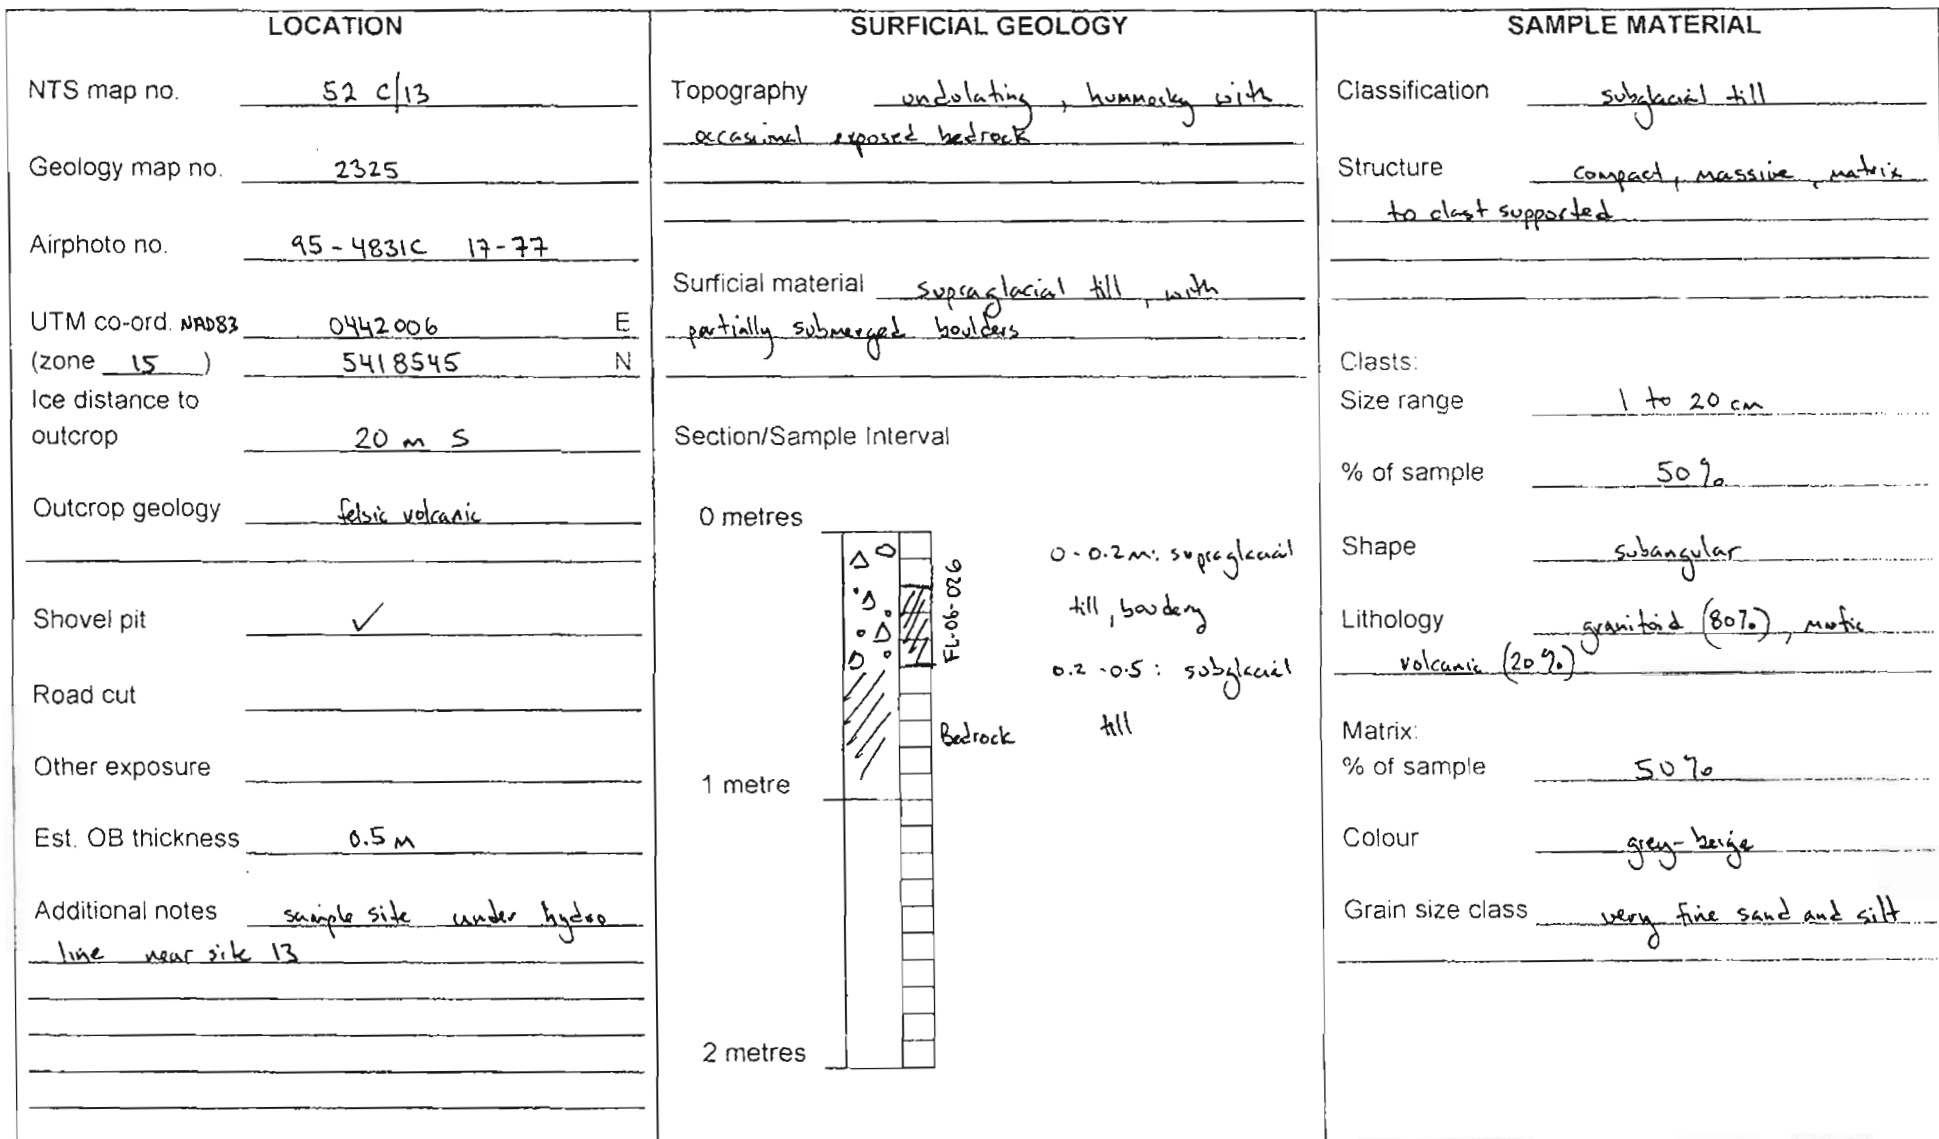 LOCATION
NTS map no. 52 C/13
Geology map no. 2325
Airphoto no. 95-4831C 17-77
UTM co-ord. NAD83 0442006 E
(zone 15 ) 5418545 N
Ice distance to
outcrop 20 m S
Outcrop geology felsic volcanic
Shovel pit ✓
Road cut
Other exposure
Est. OB thickness 0.5 m
Additional notes sample site under hydro
line near site 13
SURFICIAL GEOLOGY
Topography undulating, hummocky with
occasional exposed bedrock
Surficial material supraglacial till, with
partially submerged boulders
Section/Sample Interval
0 metres
FL-06-026
0-0.2m: supraglacial
till, bouldery
0.2-0.5: subglacial
till
Bedrock
1 metre
2 metres
SAMPLE MATERIAL
Classification subglacial till
Structure compact, massive, matrix
to clast supported
Clasts:
Size range 1 to 20 cm
% of sample 50%
Shape subangular
Lithology granitoid (80%), mafic
volcanic (20%)
Matrix:
% of sample 50%
Colour grey-beige
Grain size class very fine sand and silt